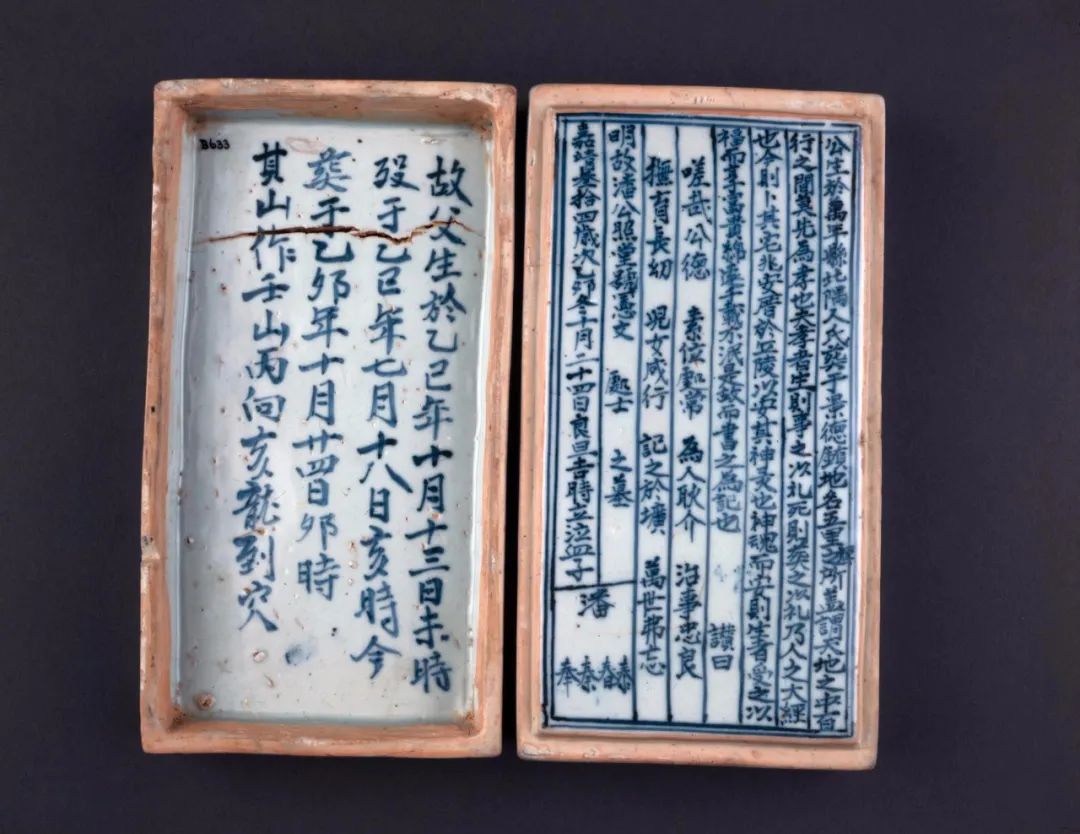 公生於萬平縣北隅人氏葬于景德鎮地名五里之所蓋謂天地之中百
行之間莫先為孝也夫孝者生則事之以礼死則葬之以礼乃人之大經
也今則卜其宅兆安厝於丘陵以安其神灵也神魂而安則生者受之以
福而享富貴綿遠千載不泯是故而書之為記也 讃曰
嗟哉公德 素位常 為人耿介 治事忠良
撫育長幼 児女咸行 記之於壙 萬世弗忘
明故潘公照堂號憲文 處士 之墓
嘉靖叁拾四歲次乙卯冬十月二十四日良旦吉時立泣血子
潘
泰春秦奉
B633
故父生於乙巳年十月十三日未時
歿于乙巳年七月十八日亥時今
葬于乙卯年十月廿四日卯時
其山作壬山丙向亥龍到穴